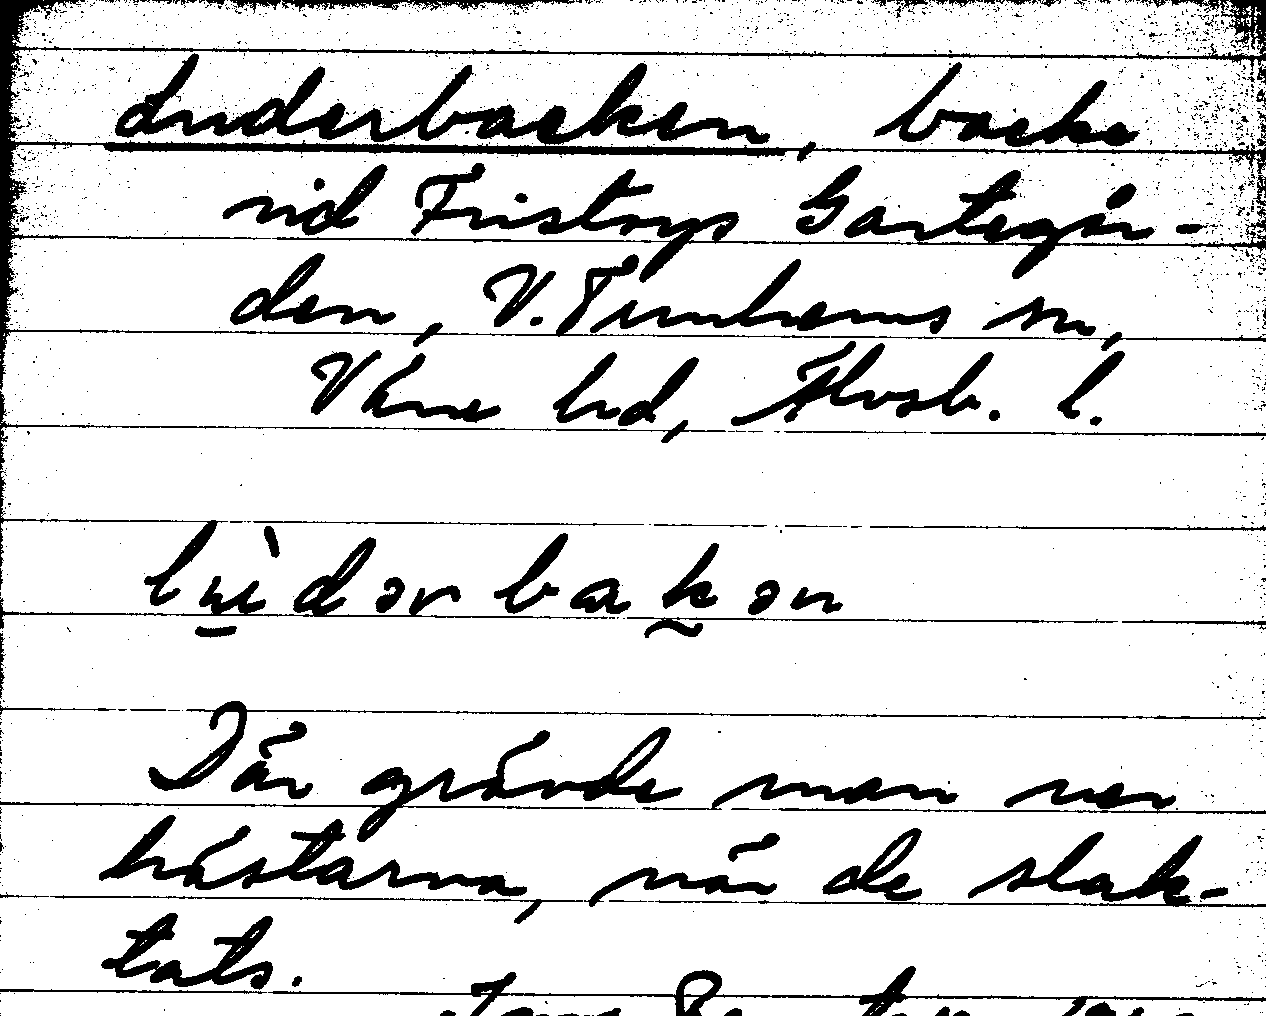 Luderbacken, backe
vid Fristorps Gartegår-
den, V. Tunhems sn,
Väne hd, Älvsb. l.
lɯ̀dərbakən
Där grävde man ner
hästarna, när de slak-
tats.